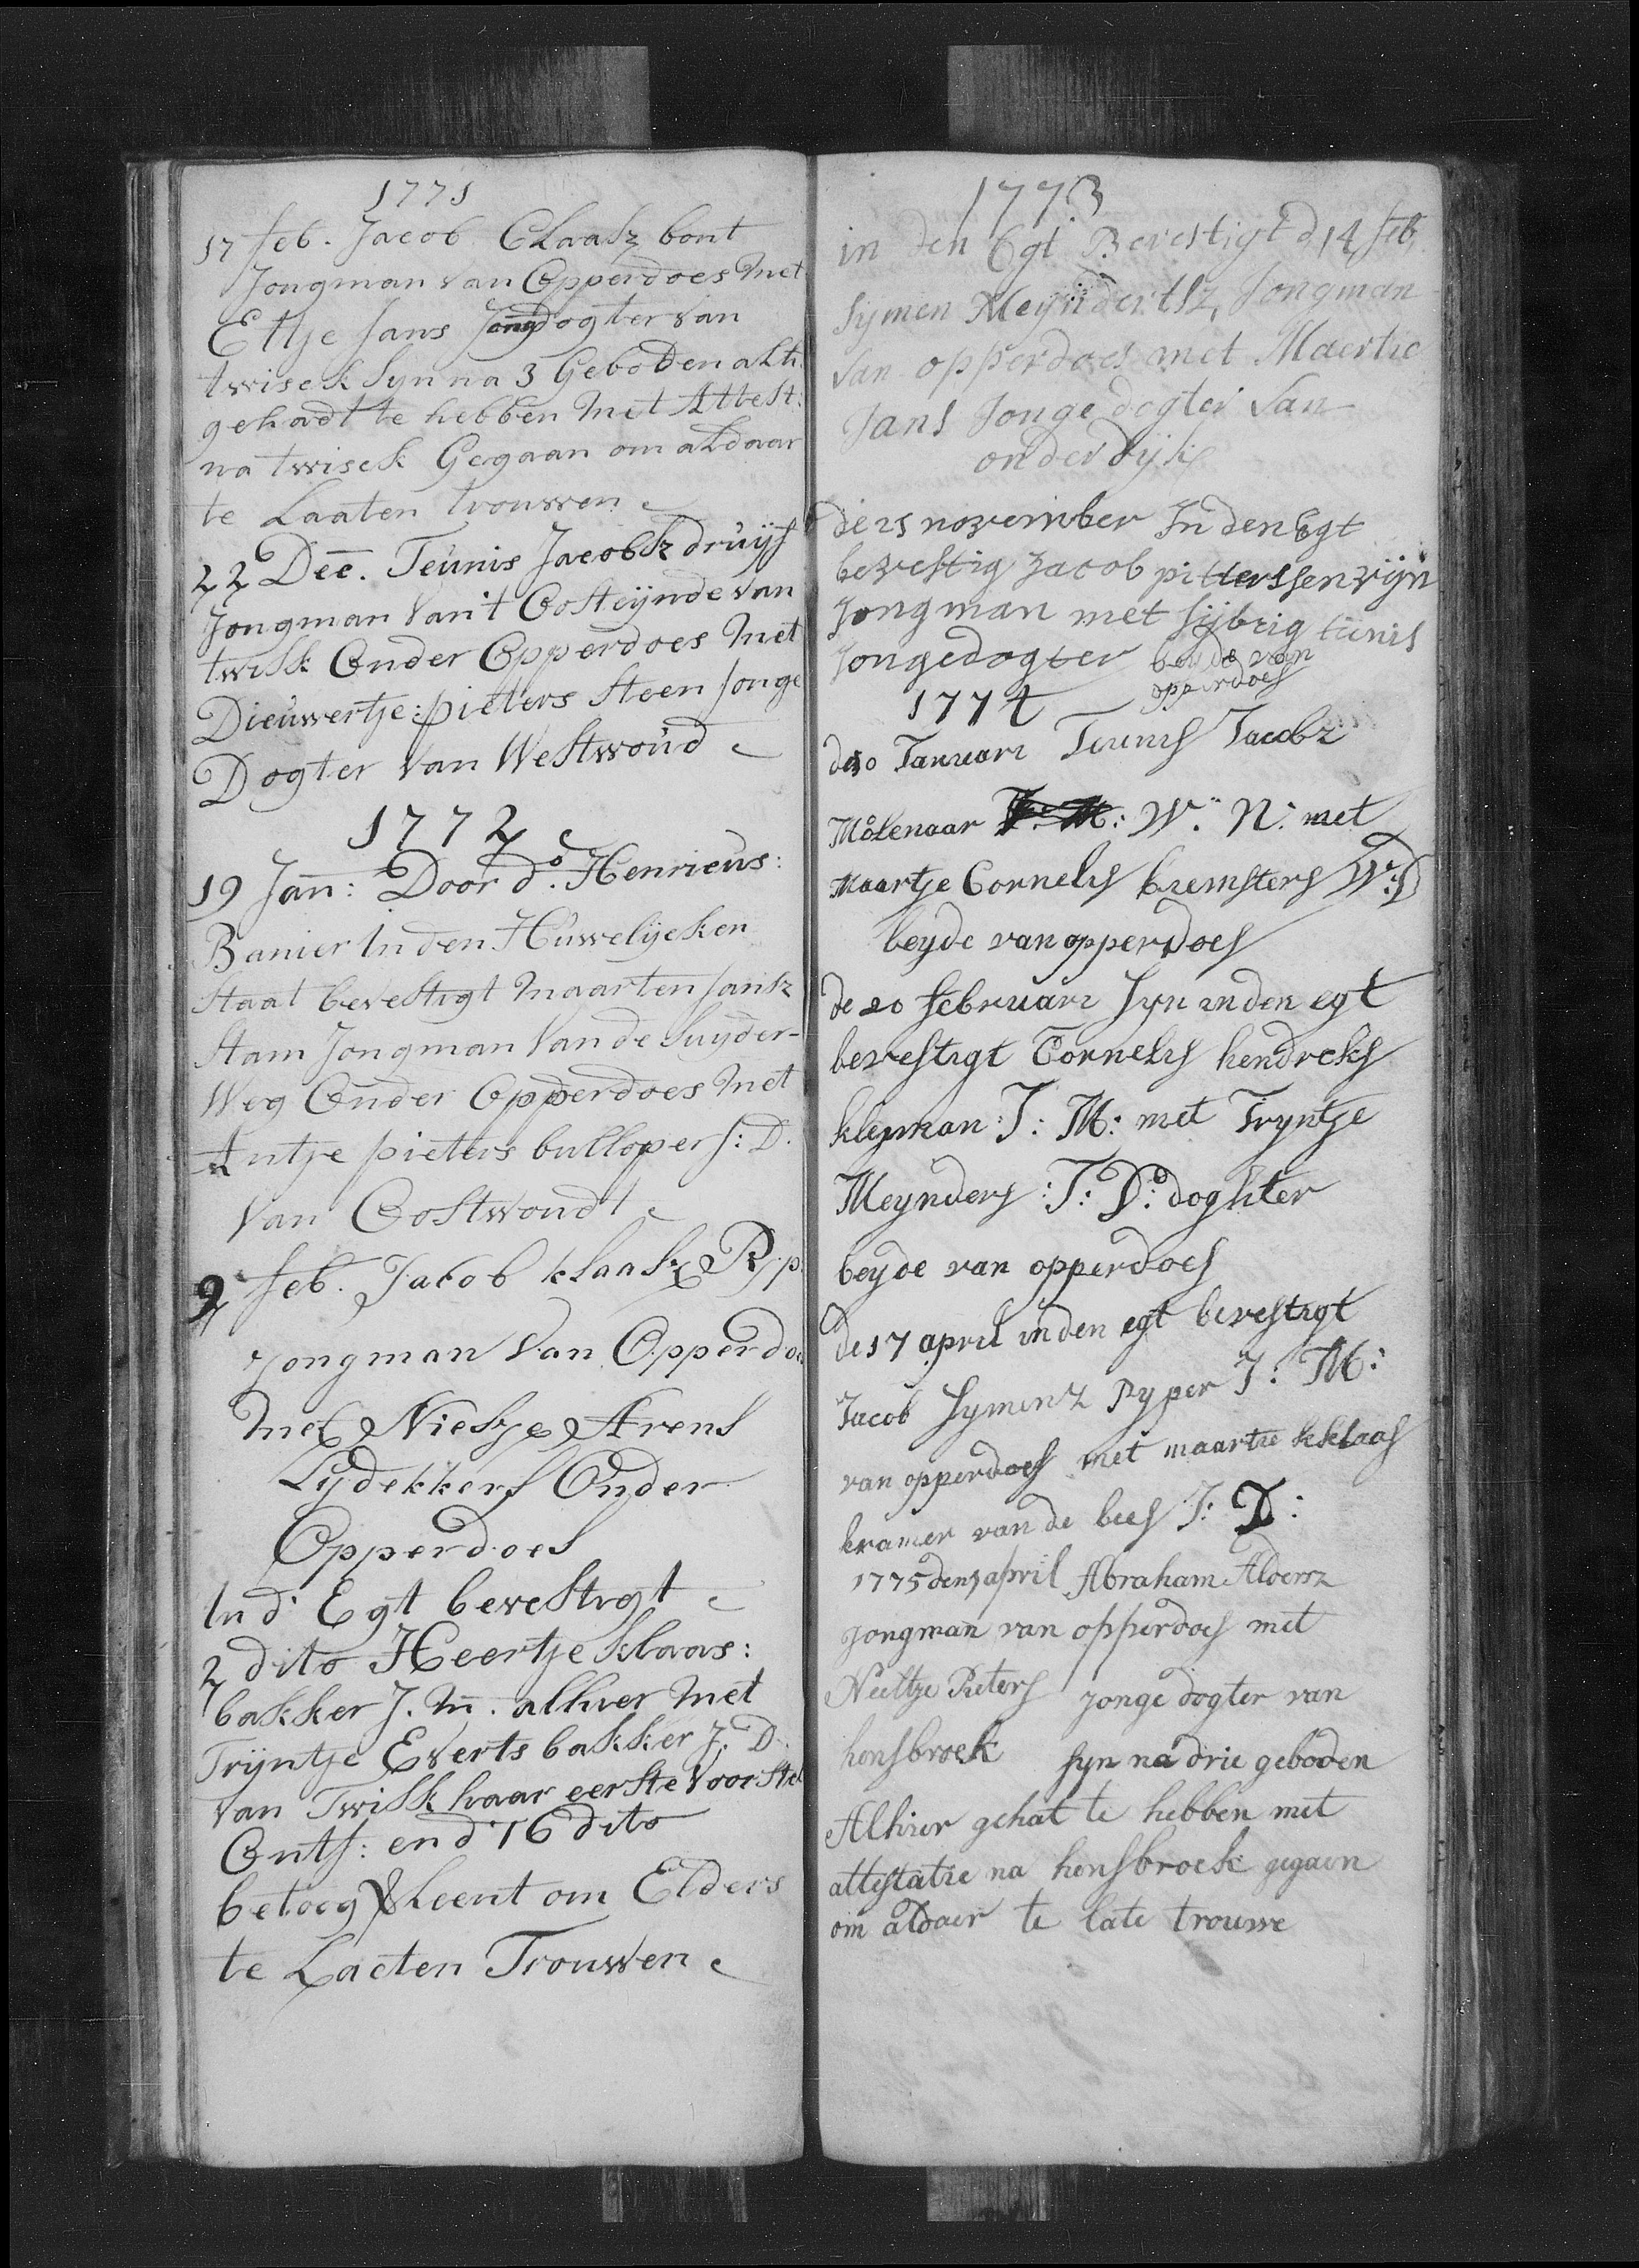 1771
17 feb. Jacob Claasz bont
Jongman van Opperdoes Met
Eltje Jans Jongdogter van
twisek Syn na 3 Geboden alh:
gehadt te hebben Met Attest:
na twisek Gegaan om aldaar
te Laaten trouwen
22 Dec. Teunis Jacobsz druijf
Jongman van 't Oosteijnde van
twisk Onder Opperdoes Met
Dieuwertje: pieters Steen Jonge
Dogter van Westwoud
1772
19 Jan: Door do. Henricus:
Banier In den Huwelijcken
Staat bevestigt Maarten Jansz
Stam Jongman Van de Suyder-
Weg Onder Opperdoes Met
Antje pieters bulloper J: D.
Van Oostwoudt
2 feb. Jacob klaasz Ryp
Jongman Van Opperdoes
Met Niesje Arens
Lydekkers Onder
Opperdoes
In d' Egt bevestigt
2 dito Heertje klaas:
bakker J. M. alhier Met
Trijntje Everts bakker J. D.
van Twisk haar eerste voorstel
Ontf: en d' 16 dito
betoog Vleent om Elders
te Laeten Trouwen
1773
in den Egt Bevestigt d 14 feb
Symen Meyndertsz, Jongman
van opperdoes met Maertie
Jans Jonge dogter van
onderdijk
de 25 november In den Egt
bevestig Jacob pitterssen wijn
Jongman met sijbrig tunis
Jongedogter beyde van
opperdoes
1774
de 30 Januari Teunis Jacobz
Molenaar J: M: W: N: met
Maartje Cornelis kremsters W: D
beyde van opperdoes
de 20 februari syn in den egt
bevestigt Cornelis hendreks
kleyman J: M: met Tryntje
Meynders: J: D: doghter
beyde van opperdoes
de 17 april in den egt bevestigt
Jacob Symenz Ryper J: M:
van opperdoes met maartie kklaas
kramer van de bees J: D:
1775 den 7 april Abraham Aldersz
Jongman van opperdoes met
Neeltje Pieters Jonge dogter van
hensbroek syn na drie geboden
Alhier gehat te hebben met
attestatie na hensbroek gegaen
om aldaer te late trouwe